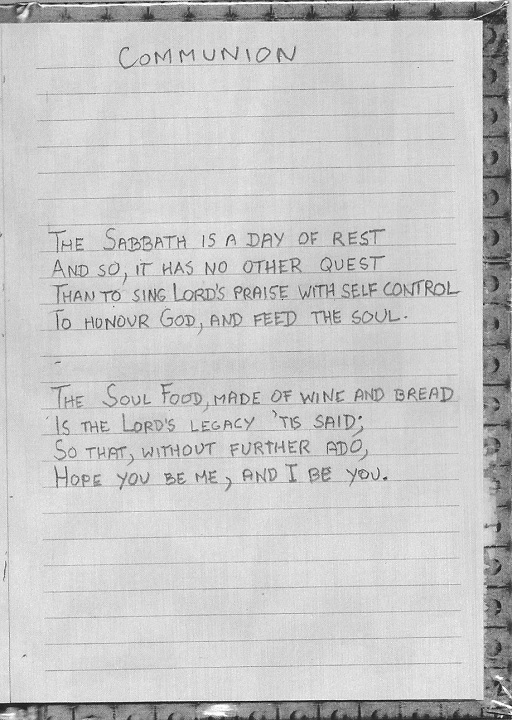 COMMUNION
THE SABBATH IS A DAY OF REST
AND SO, IT HAS NO OTHER QUEST
THAN TO SING LORD'S PRAISE WITH SELF CONTROL
TO HONOUR GOD, AND FEED THE SOUL.
THE SOUL FOOD, MADE OF WINE AND BREAD
IS THE LORD'S LEGACY 'TIS SAID;
SO THAT, WITHOUT FURTHER ADO,
HOPE YOU BE ME, AND I BE YOU.